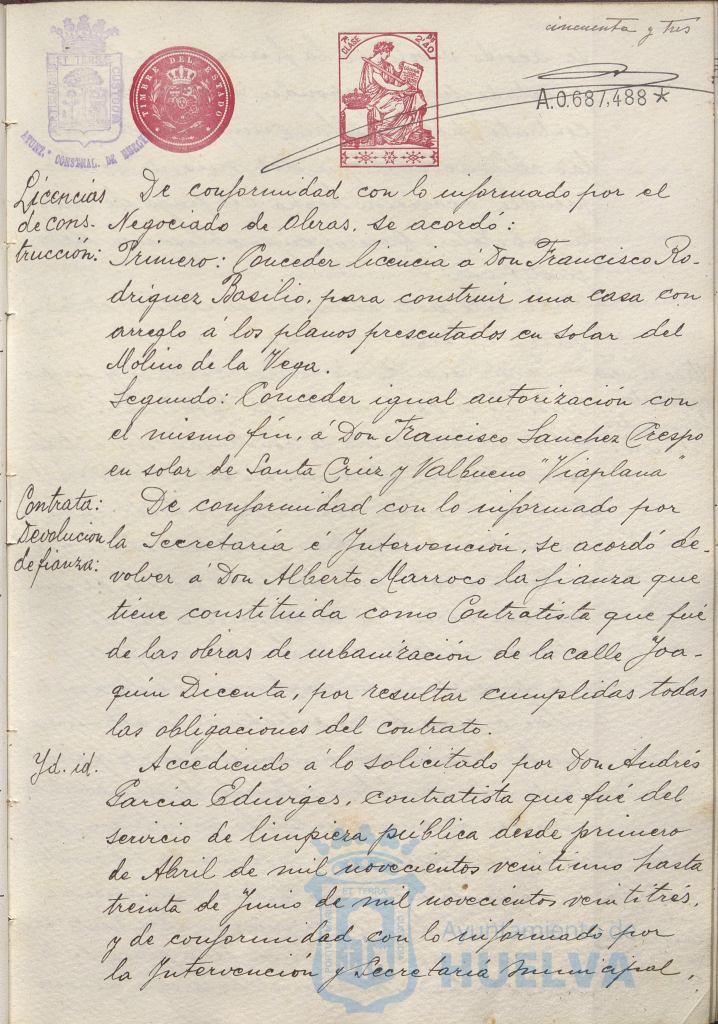 cincuenta y tres
CLASE 7ª
2'40 PTS
TIMBRE DEL ESTADO
A.0.687,488 *
AYUNT.º CONSTNAL. DE HUELVA
Licencias
de cons-
trucción:
De conformidad con lo informado por el
Negociado de Obras, se acordó:
Primero: Conceder licencia á Don Francisco Ro-
dríguez Basilio, para construir una casa con
arreglo á los planos presentados en solar del
Molino de la Vega.
Segundo: Conceder igual autorización con
el mismo fin, á Don Francisco Sanchez Crespo
en solar de Santa Cruz y Valbueno "Viaplana"
Contrata:
Devolucion
de fianza:
De conformidad con lo informado por
la Secretaría é Intervención, se acordó de-
volver á Don Alberto Marroco la fianza que
tiene constituida como Contratista que fué
de las obras de urbanización de la calle Joa-
quin Dicenta, por resultar cumplidas todas
las obligaciones del contrato.
Yd. id.
Accediendo á lo solicitado por Don Andrés
García Eduviges, contratista que fué del
servicio de limpieza pública desde primero
de Abril de mil novecientos veintiuno hasta
treinta de Junio de mil novecientos veintitrés,
y de conformidad con lo informado por
la Intervención y Secretaría municipal,
ET TERRA
Ayuntamiento de
HUELVA